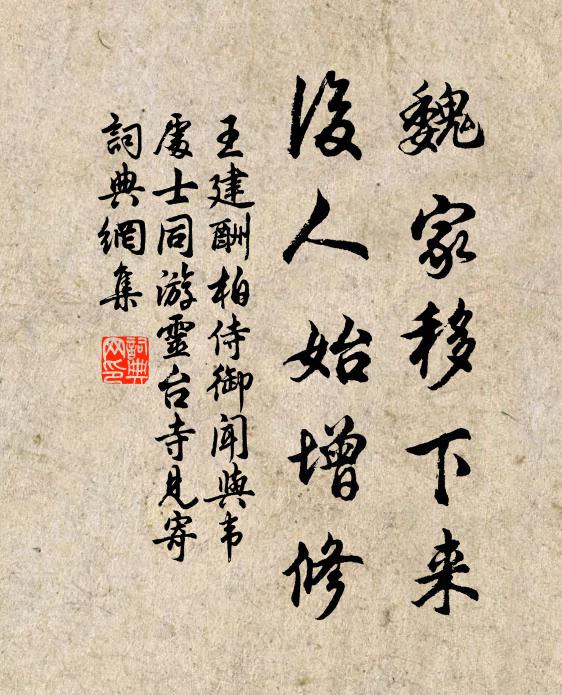 魏家移下来
後人始增修
王建酬柏侍御闻與韦
處士同游靈台寺見寄
詞典網集
詞典网印